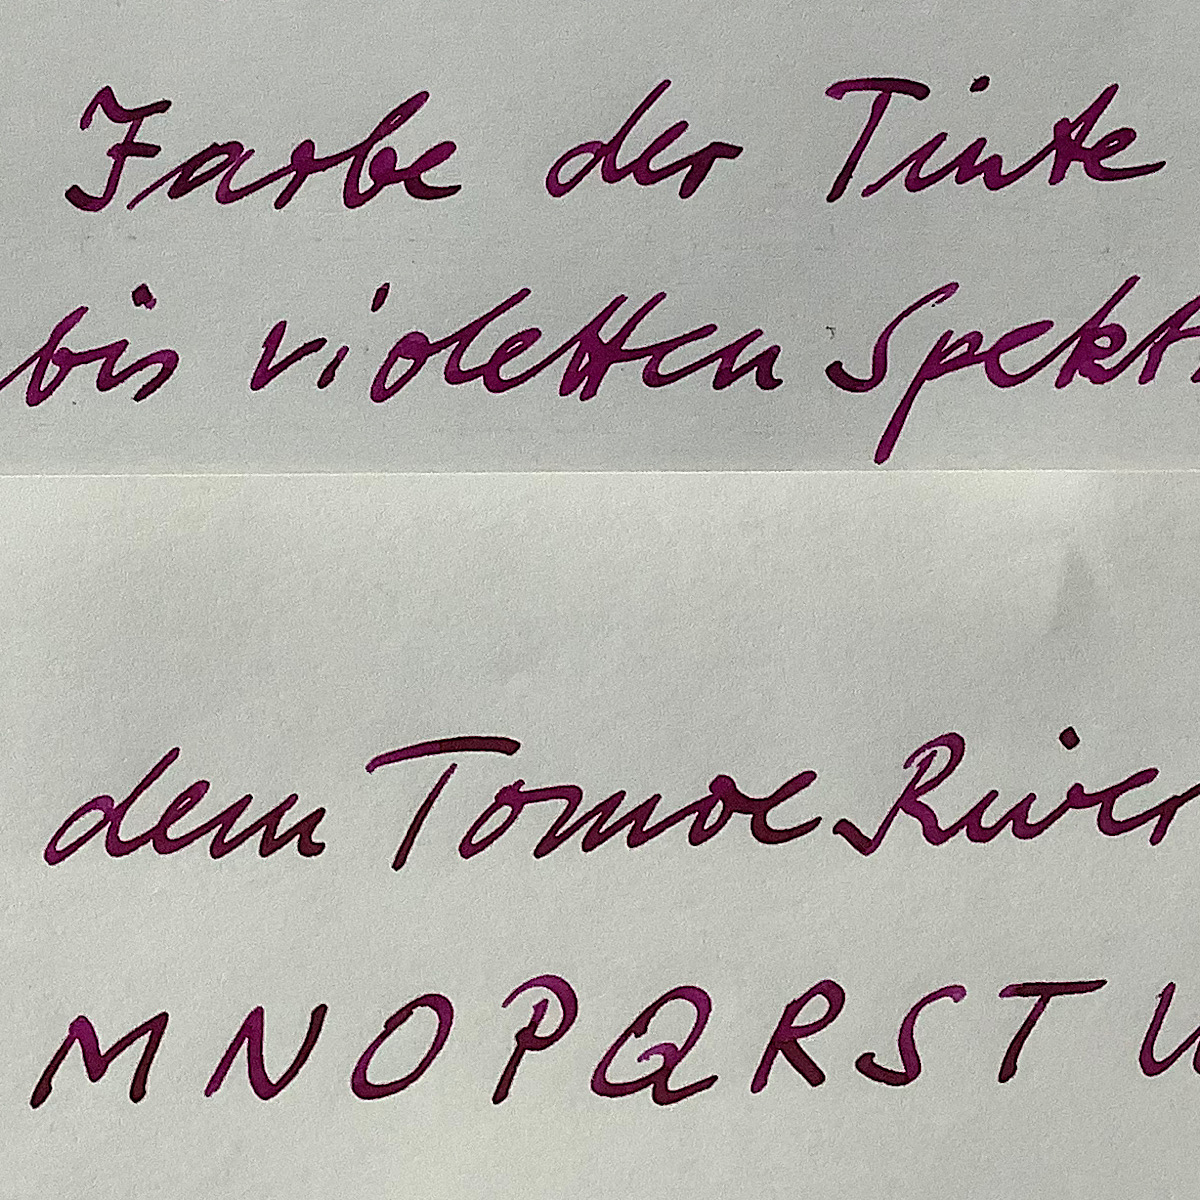 Farbe der Tinte
bis violetten Spekt
dem Tomoe River
M N O P Q R S T U